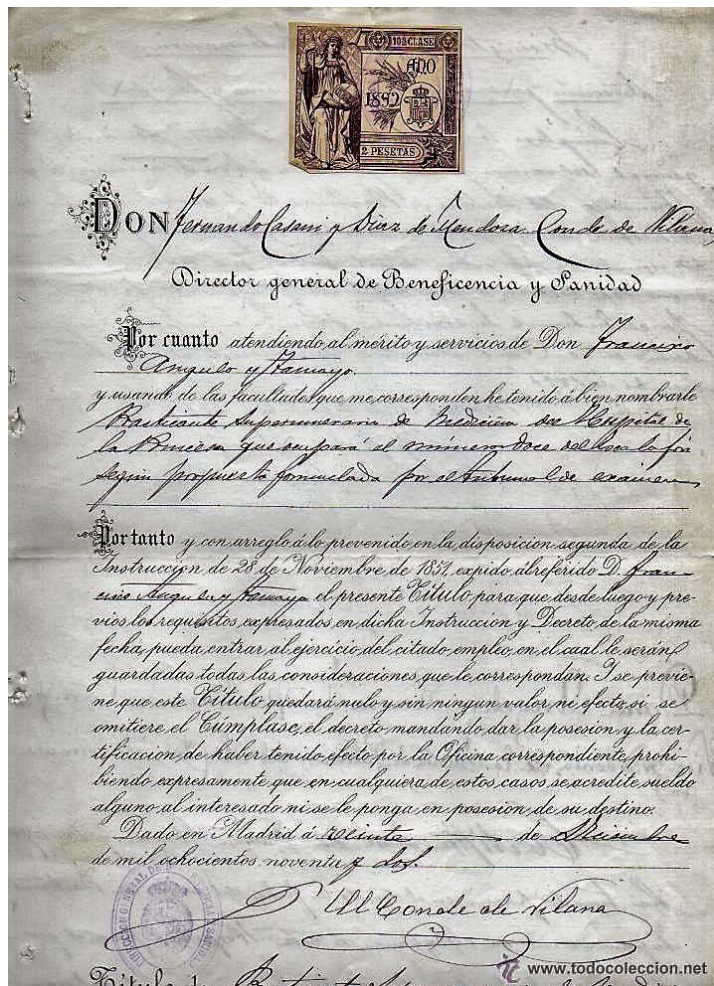 10ª CLASE
AÑO
1892
2 PESETAS
DON Fernando Casani y Diaz de Mendoza Conde de Vilana,
Director general de Beneficencia y Sanidad
Por cuanto atendiendo al mérito y servicios de Don Francisco
Angulo y Tamayo
y usando de las facultades que me corresponden he tenido á bien nombrarle
Practicante Supernumerario de Medicina del Hospital de
la Princesa que ocupará el número doce del
según propuesta formulada por el tribunal de examen
Por tanto y con arreglo á lo prevenido en la disposicion segunda de la
Instruccion de 28 de Noviembre de 1851, expido al referido D. Fran-
cisco Angulo y Tamayo el presente Título para que desde luego y pre-
vios los requisitos expresados en dicha Instruccion y Decreto de la misma
fecha, pueda entrar al ejercicio del citado empleo, en el cual le serán
guardadas todas las consideraciones que le correspondan. Y se previe-
ne que este Título quedará nulo y sin ningun valor ni efecto, si se
omitiere el Cúmplase, el decreto mandando dar la posesion y la cer-
tificacion de haber tenido efecto por la Oficina correspondiente, prohi-
biendo expresamente que en cualquiera de estos casos se acredite sueldo
alguno al interesado ni se le ponga en posesion de su destino.
Dado en Madrid á veinte de Diciembre
de mil ochocientos noventa y dos.
El Conde de Vilana
DIRECCION GENERAL DE
Título de
www.todocoleccion.net